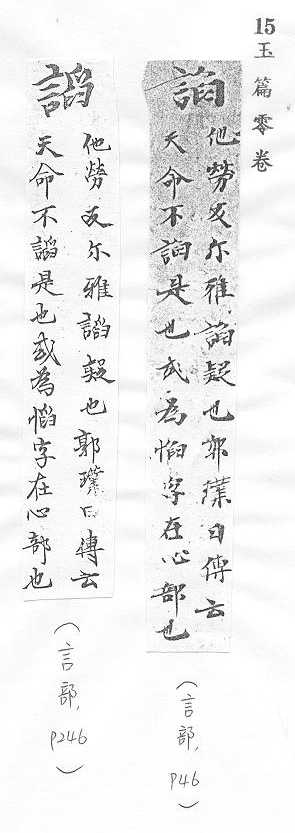 15玉篇零卷
謟
他勞反尒雅謟疑也郭璞曰傳云
天命不謟是也或為慆字在心部也
（言部,P46）
謟
他勞反尒雅謟疑也郭璞曰傳云
天命不謟是也或為慆字在心部也
（言部,P246）